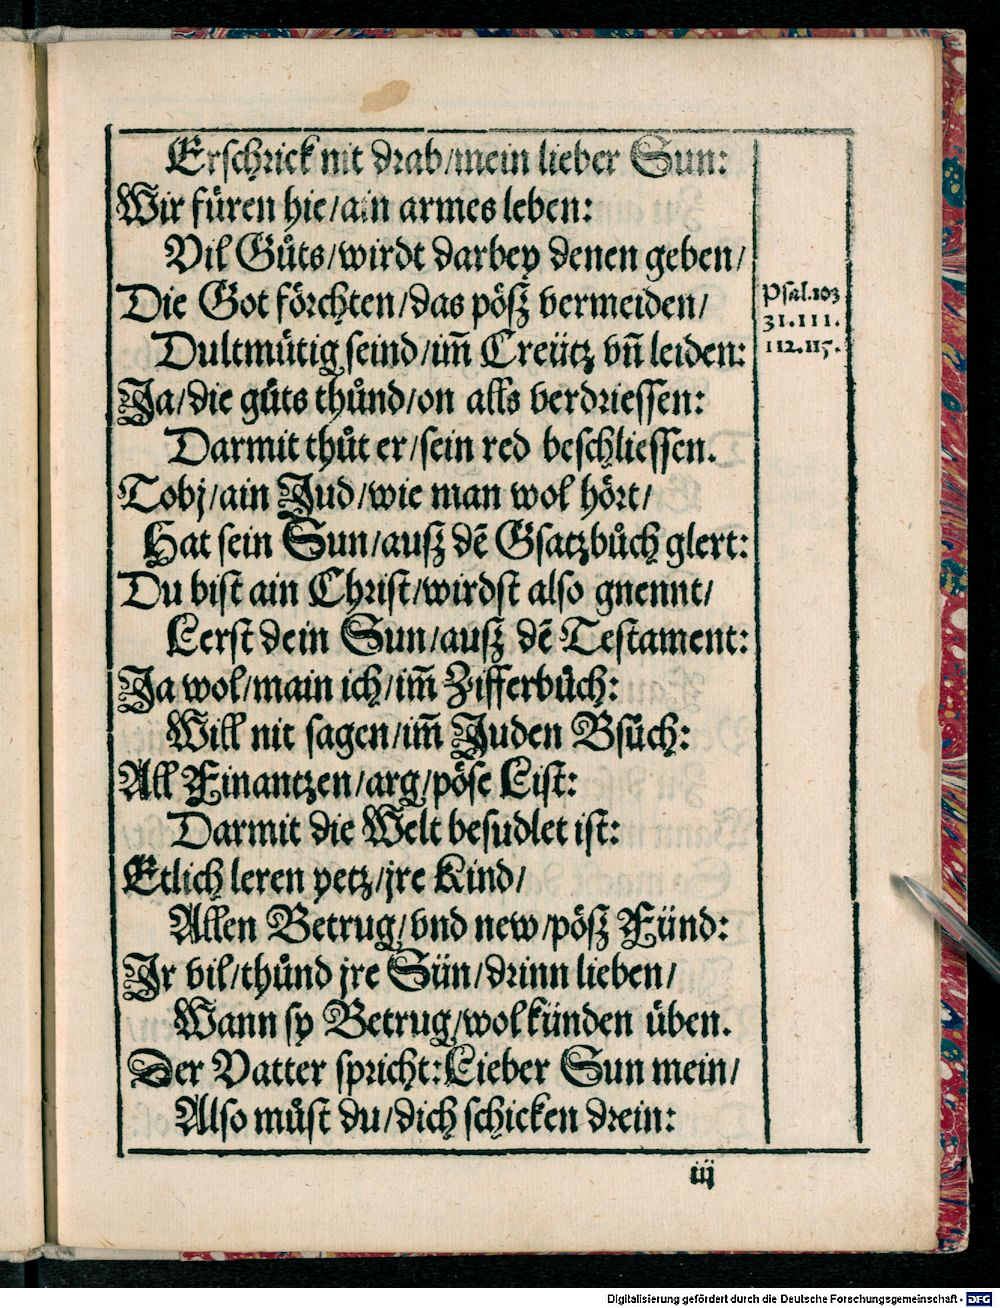 Erschrick nit drab/mein lieber Sun:
Wir füren hie/ain armes leben:
Vil Gůts/wirdt darbey denen geben/
Die Got förchten/das pösz vermeiden/
Psal.103
31.111.
112.115.
Dultmütig seind/im̃ Creütz vñ leiden:
Ja/die gůts thůnd/on alls verdriessen:
Darmit thůt er/sein red beschliessen.
Tobj/ain Jud/wie man wol hört/
Hat sein Sun/ausz dẽ Gsatzbůch glert:
Du bist ain Christ/wirdst also gnennt/
Lerst dein Sun/ausz dẽ Testament:
Ja wol/main ich/im̃ Zifferbůch:
Will nit sagen/im̃ Juden Bsůch:
All Finantzen/arg/pöse List:
Darmit die Welt besudlet ist:
Etlich leren yetz/jre Kind/
Allen Betrug/vnd new/pösz Fünd:
Jr vil/thůnd jre Sün/drinn lieben/
Wann sy Betrug/wol künden üben.
Der Vatter spricht:Lieber Sun mein/
Also můst du/dich schicken drein:
iij
Digitalisierung gefördert durch die Deutsche Forschungsgemeinschaft - DFG